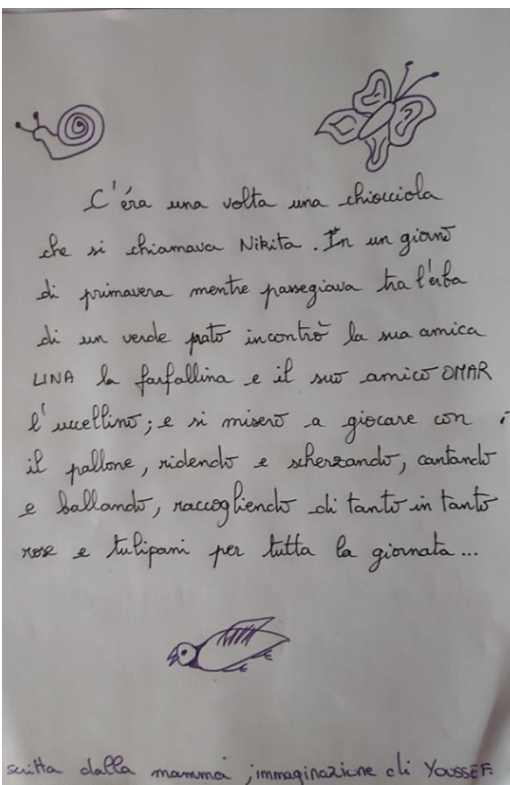 C'éra una volta una chiocciola
che si chiamava Nikita. In un giorno
di primavera mentre passegiava tra l'erba
di un verde prato incontrò la sua amica
LINA la farfallina e il suo amico OMAR
l'uccellino; e si misero a giocare con
il pallone, ridendo e scherzando, cantando
e ballando, raccogliendo di tanto in tanto
rose e tulipani per tutta la giornata...
scritta dalla mamma, immaginazione di YOUSSEF.